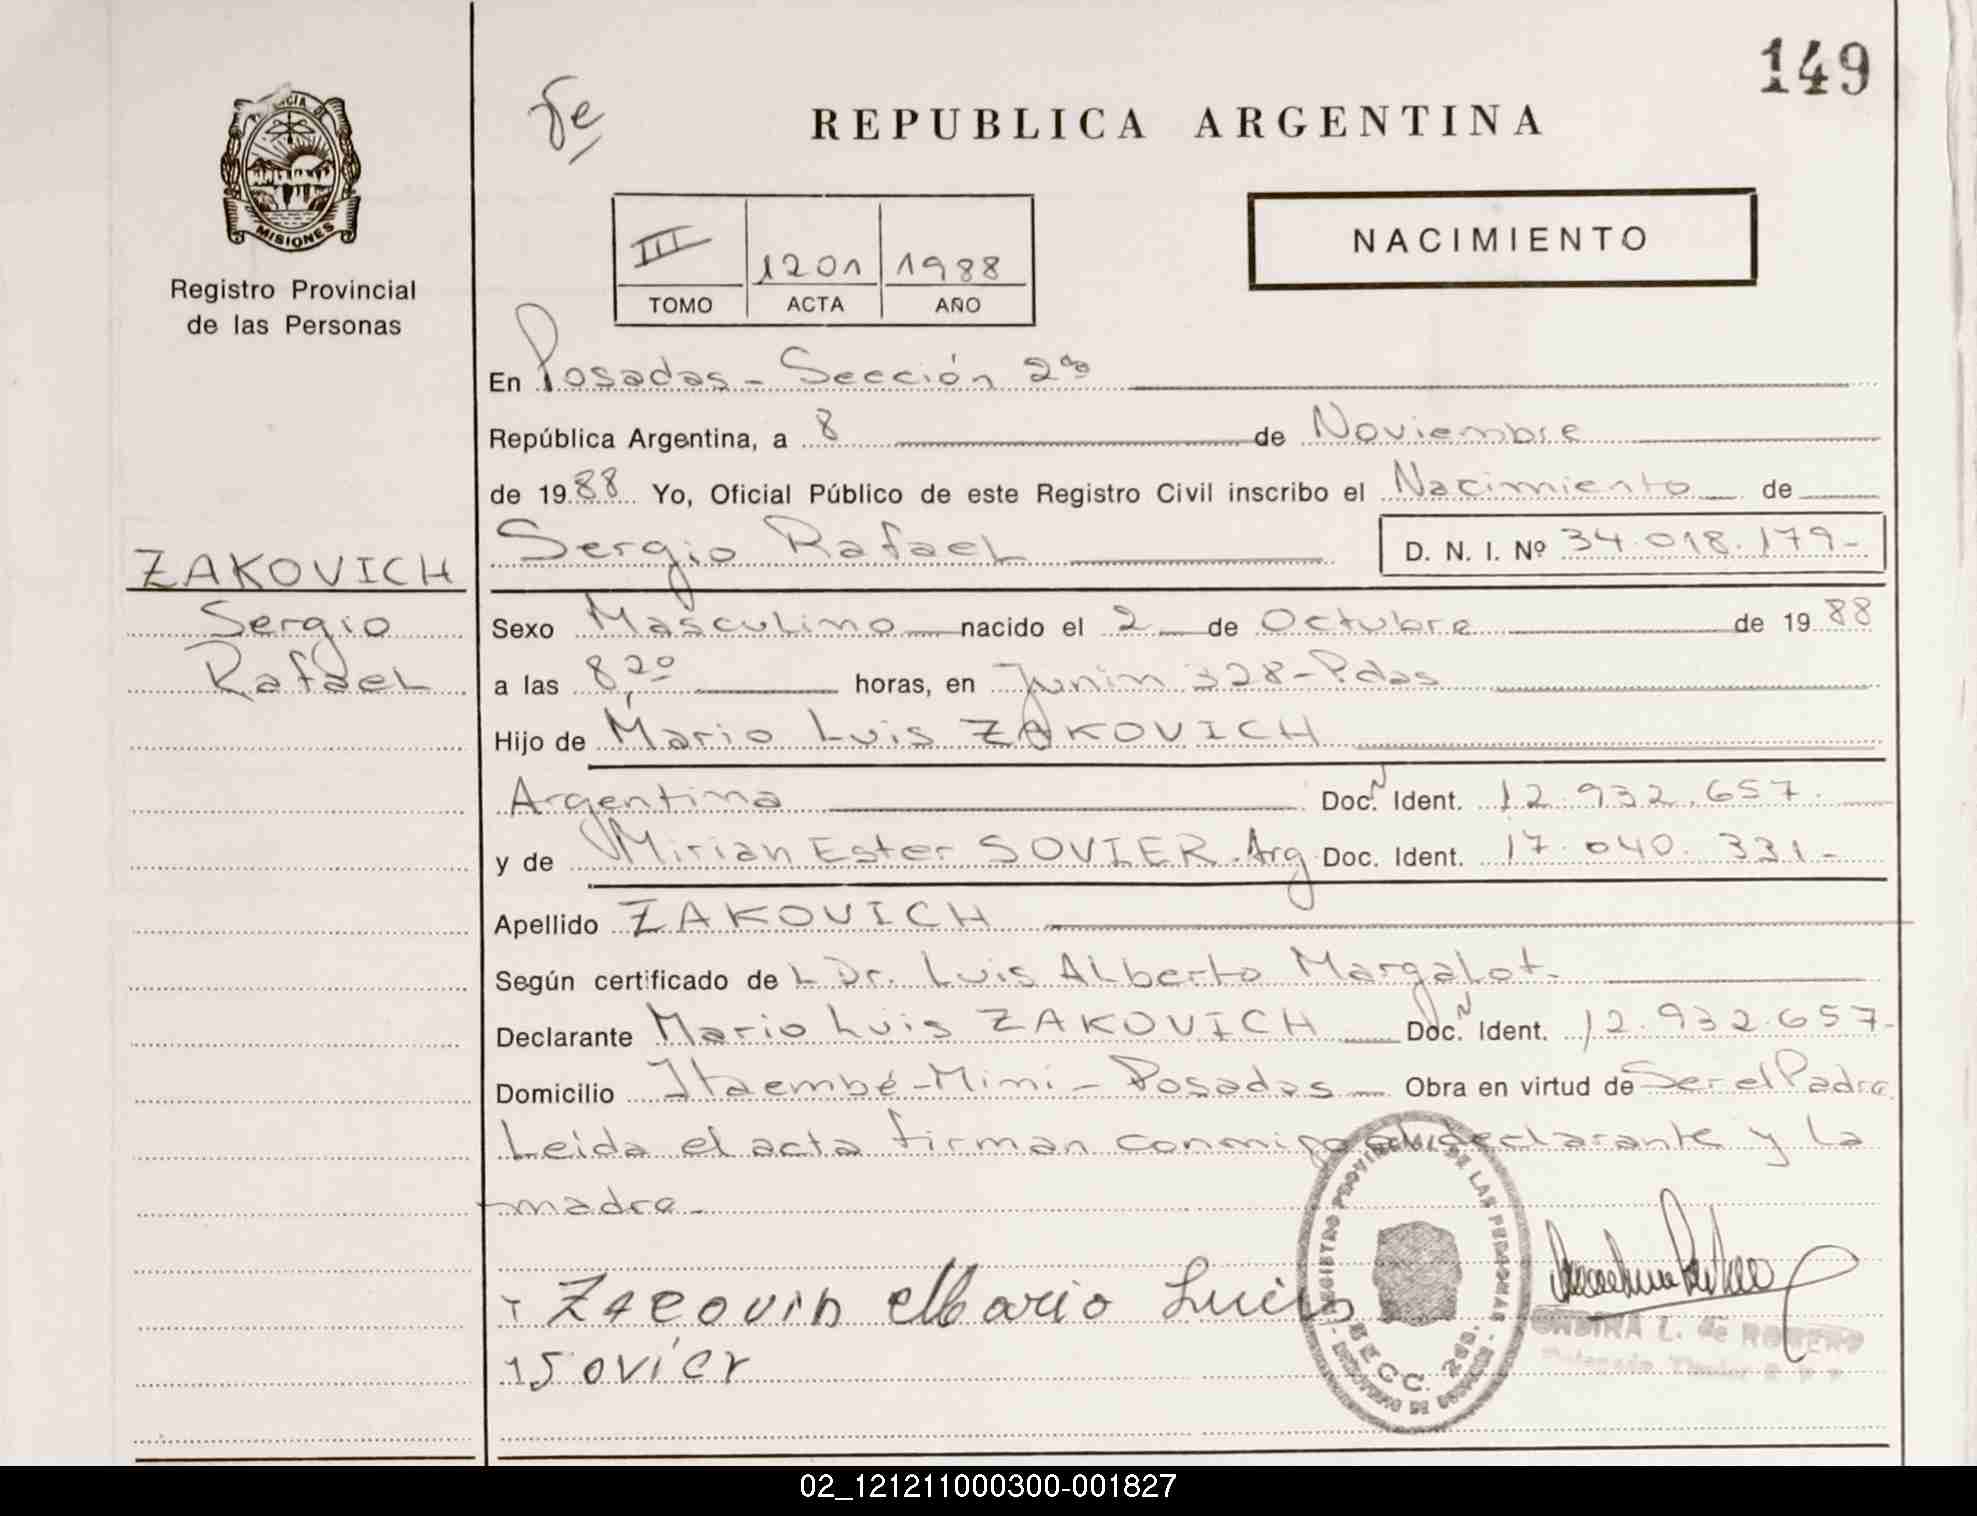 149
fe
REPUBLICA ARGENTINA
PROVINCIA DE
MISIONES
Registro Provincial
de las Personas
NACIMIENTO
III 1201 1988
TOMO ACTA AÑO
En Posadas - Sección 2da
República Argentina, a 8 de Noviembre
de 1988 Yo, Oficial Público de este Registro Civil inscribo el Nacimiento de
Sergio Rafael D. N. I. Nº 34.018.179-
ZAKOVICH
Sergio
Rafael
Sexo Masculino nacido el 2 de Octubre de 1988
a las 8,20 horas, en Junin 328-Pdas
Hijo de Mario Luis ZAKOVICH
Argentina Doc. N Ident. 12.932.657.
y de Mirian Ester SOVIER. Arg Doc. Ident. 17.040.331-
Apellido ZAKOVICH
Según certificado de L Dr. Luis Alberto Margalot.
Declarante Mario Luis ZAKOVICH Doc. N Ident. 12.932.657-
Domicilio Itaembé-Mini - Posadas Obra en virtud de Ser el Padre
Leida el acta firman conmigo el declarante y la
madre.
Mario Luis
Sovier
REGISTRO PROVINCIAL DE LAS PERSONAS
SECC. 2da.
L. de ROMERO
02_121211000300-001827